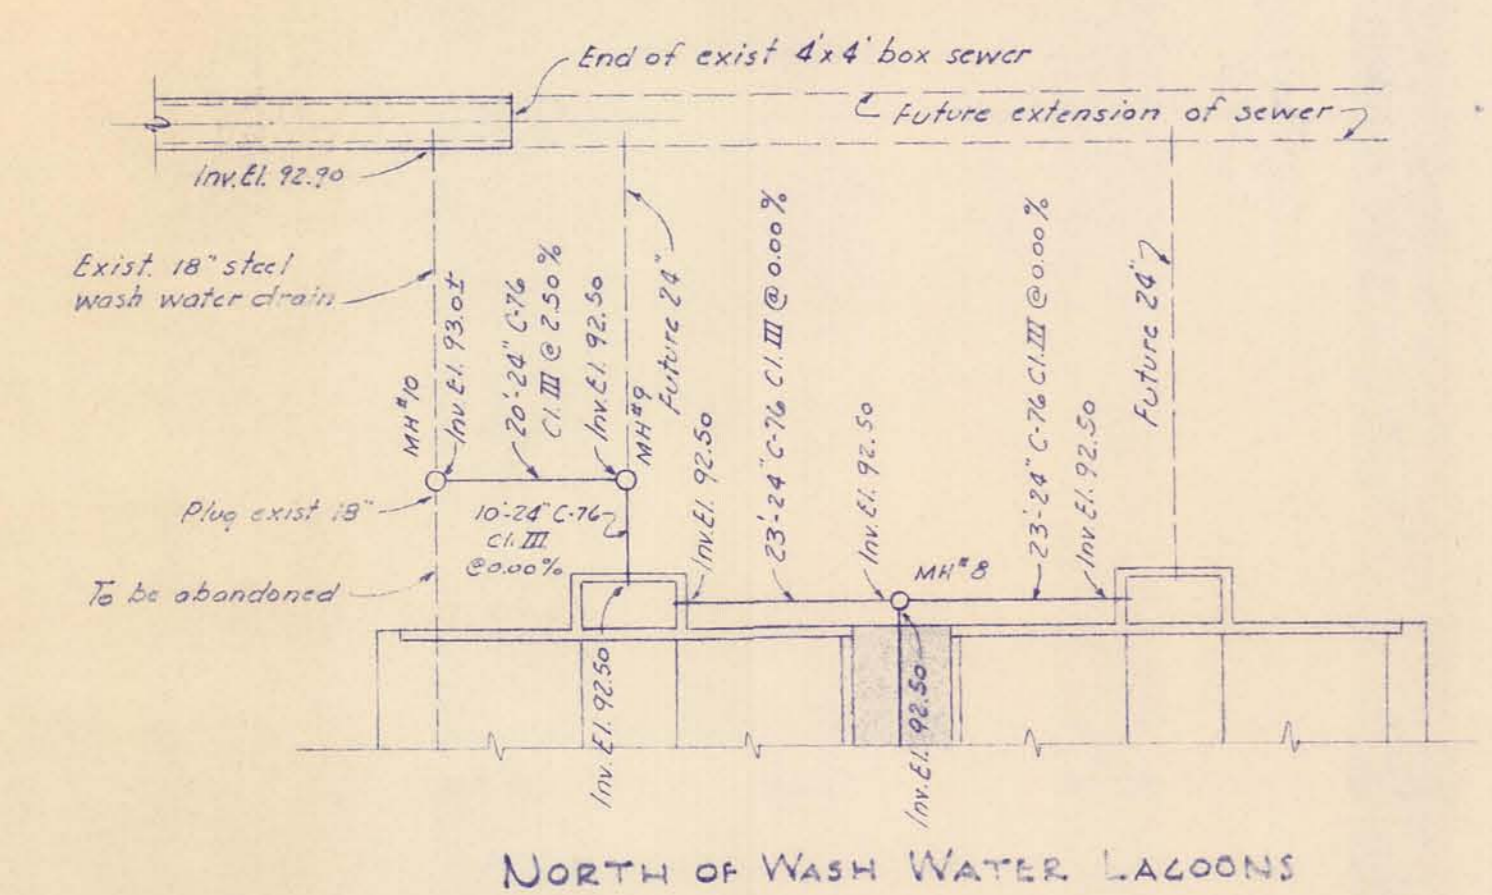 End of exist 4'x4' box sewer
Future extension of sewer
Inv.El. 92.90
Exist. 18" steel
wash water drain
MH#10
Inv.El. 93.0±
20'-24" C-76
Cl.III @ 2.50%
Inv.El. 92.50
MH#9
Future 24"
Inv.El. 92.50
23'-24" C-76 Cl.III @0.00%
Inv.El. 92.50
23'-24" C-76 Cl.III @0.00%
Inv.El. 92.50
Future 24"
Plug exist 18"
10'-24" C-76
Cl.III
@0.00%
MH#8
To be abandoned
Inv.El. 92.50
Inv.El. 92.50
NORTH OF WASH WATER LAGOONS